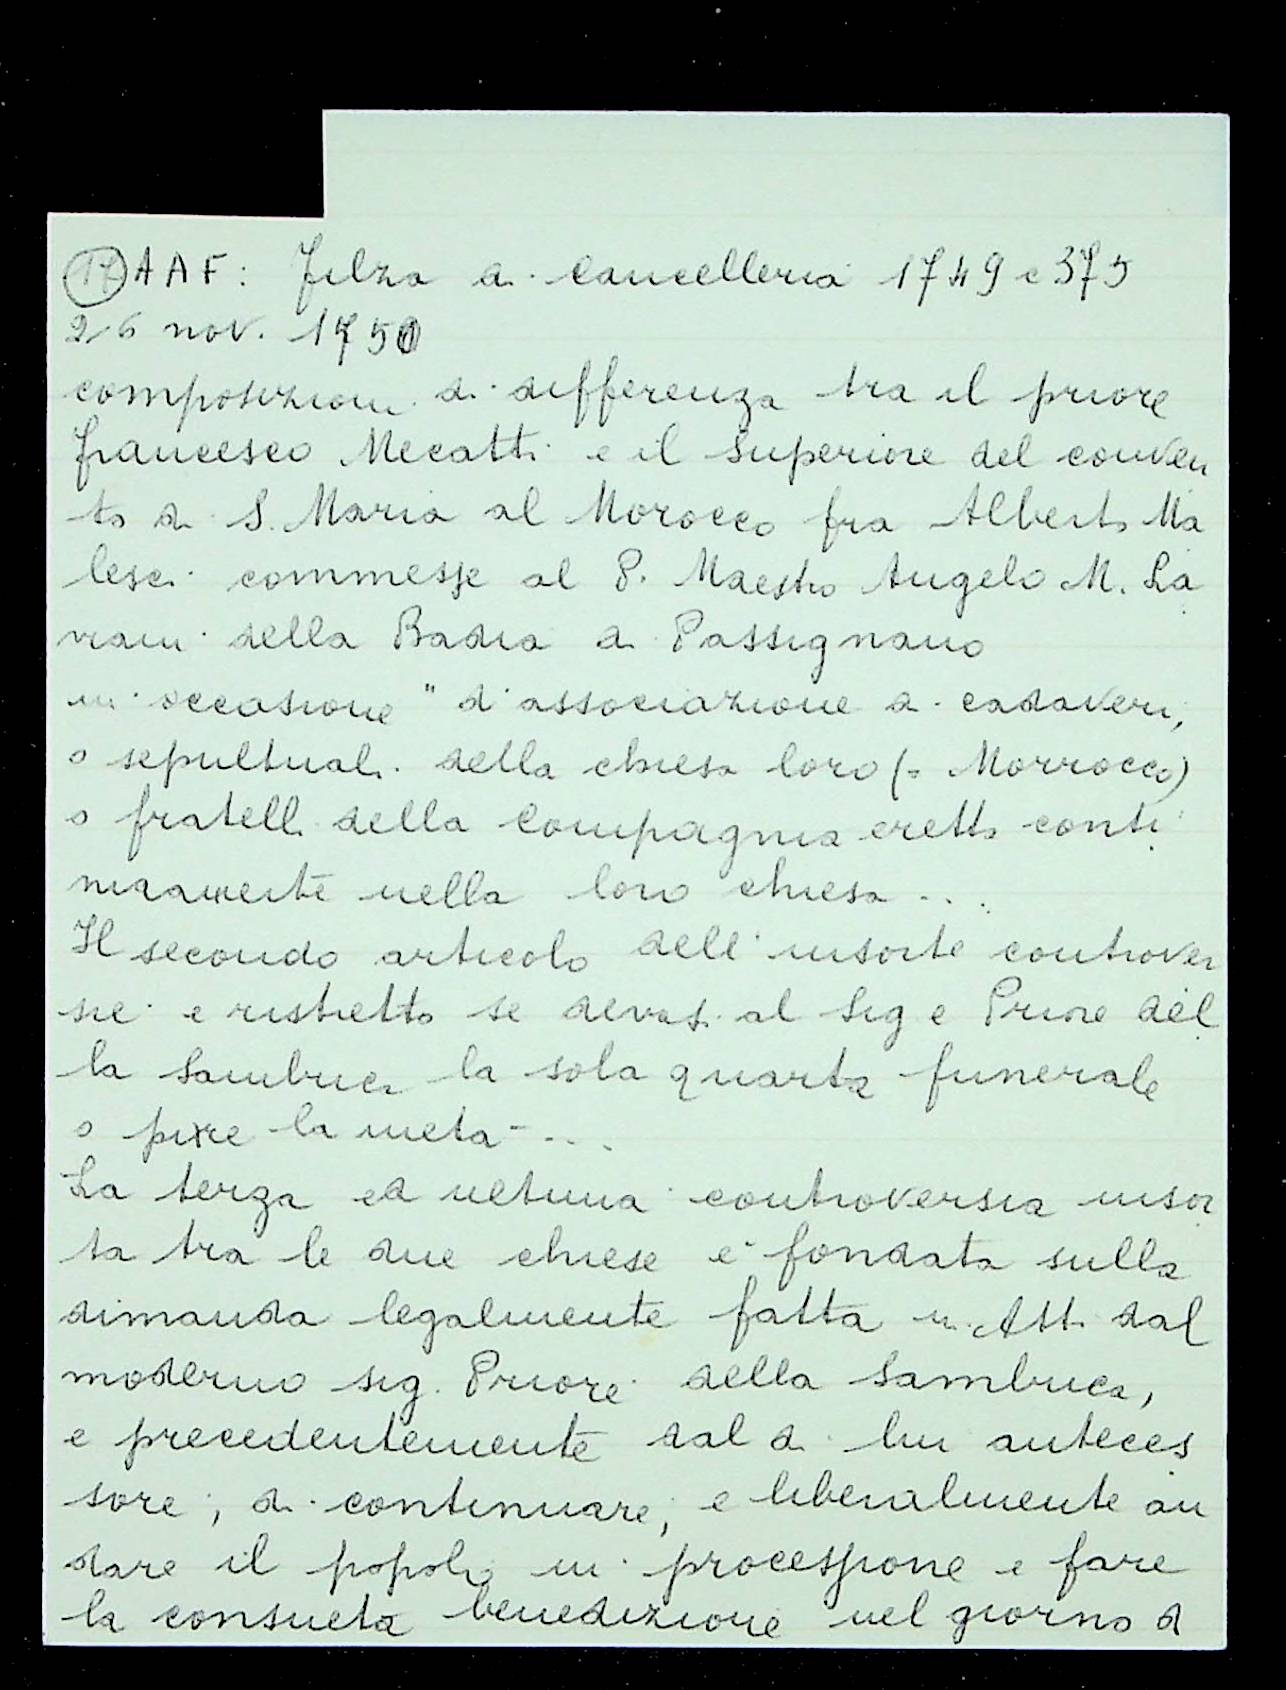 17 AAF: Filza di Cancelleria 1749 c 375
26 nov. 1750
composizioni di differenza tra il priore
Francesco Mecatti e il Superiore del conven
to di S. Maria al Morocco fra Alberto Ma
lesci commesse al P. Maestro Angelo M. La
viani della Badia di Passignano
in occasione " d'associazione di cadaveri,
o sepultuali della chiesa loro (= Morrocco)
o fratelli della Compagnia eretta conti
nuamente nella loro chiesa ...
Il secondo articolo dell'insorte controver
sie è ristretto se devasi al Sig e Priore del
la Sambuca la sola quarta funerale
o pure la metà - ...
La terza ed ultima controversia insor
ta tra le due chiese è fondata sulla
dimanda legalmente fatta in Atti dal
moderno sig. Priore della Sambuca,
e precedentemente dal di lui anteces
sore, di continuare, e liberalmente an
dare il popolo in processione e fare
la consueta benedizione nel giorno d